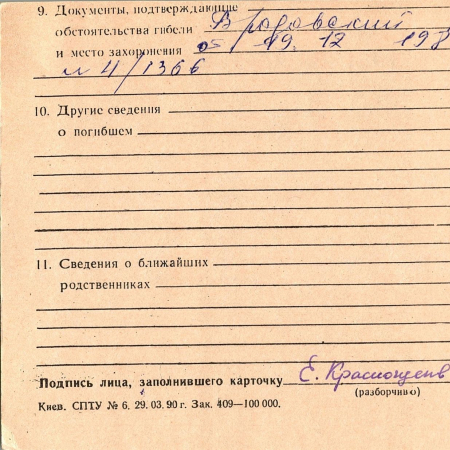 9. Документы, подтверждающие
обстоятельства гибели Бродовский
и место захоронения 19. 12 198
№ 4/1366
10. Другие сведения
о погибшем
11. Сведения о ближайших
родственниках
Подпись лица, заполнившего карточку Е. Краснощеев
(разборчиво)
Киев. СПТУ № 6. 29. 03. 90 г. Зак. 409—100 000.